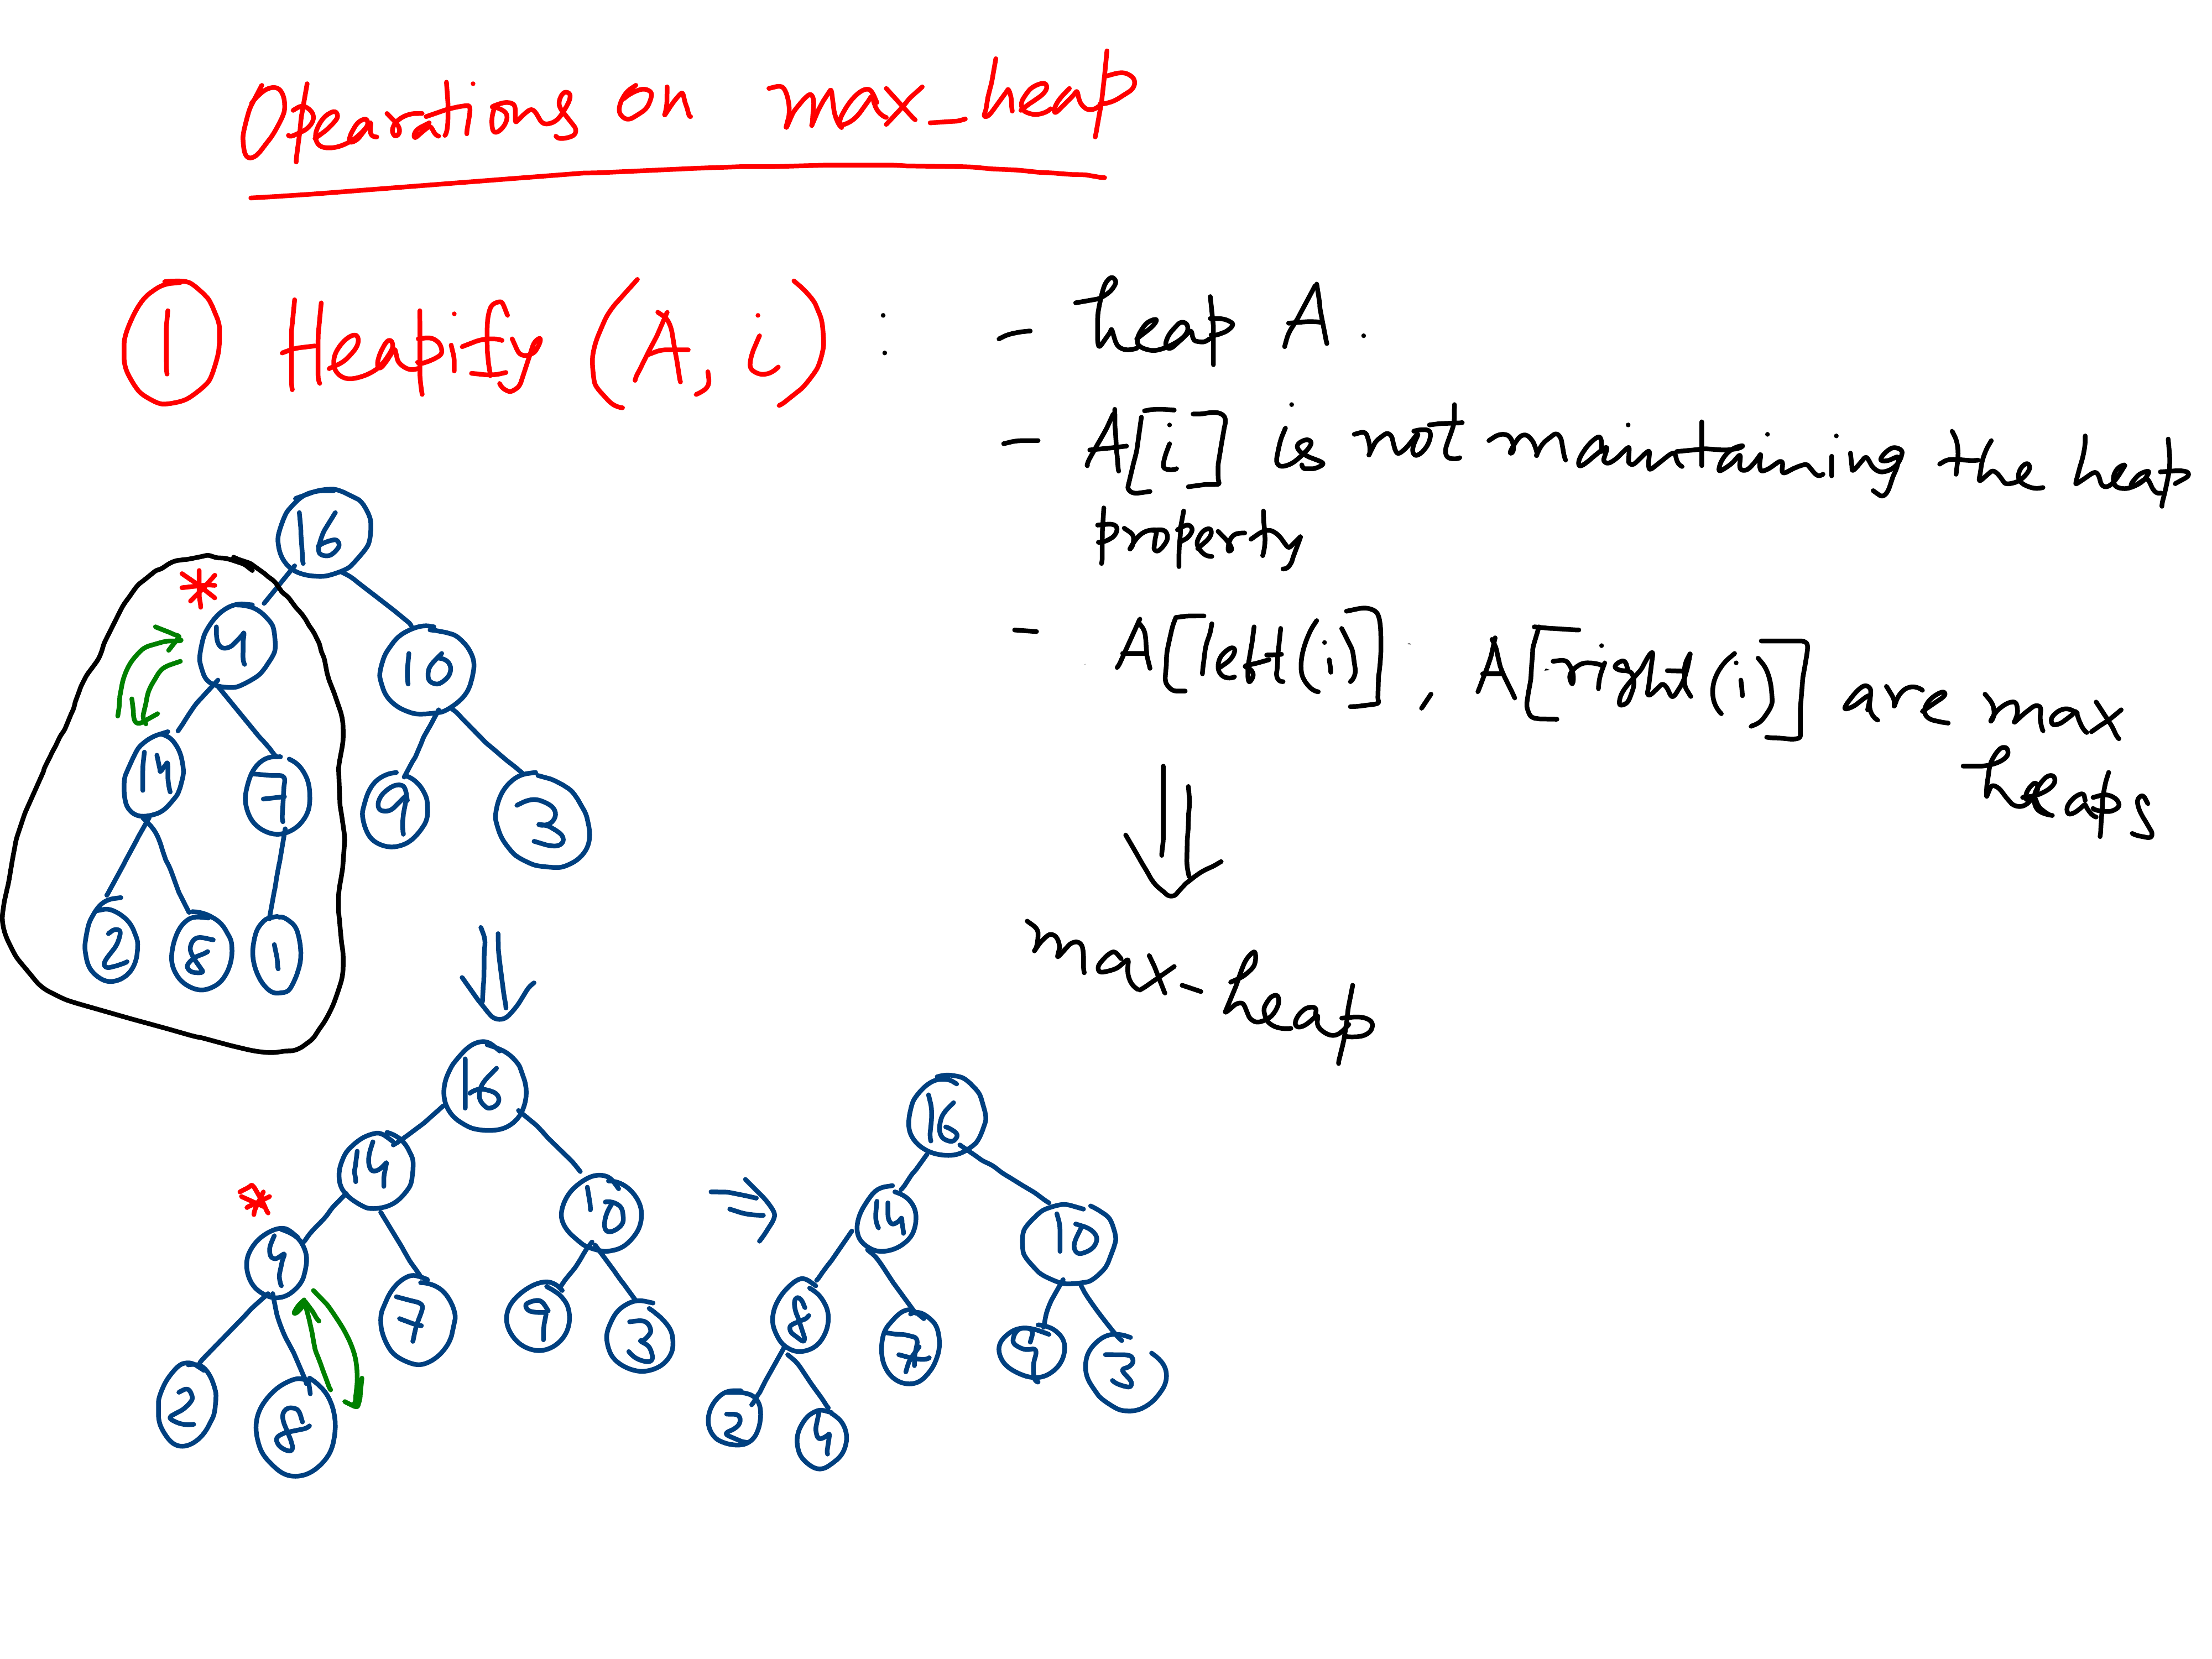 Operations on max_heap
① Heapify (A, i) : - heap A.
- A[i] is not maintaining the heap
property
- A[left(i)], A[right(i)] are max
heaps
max-heap
16
*
4 10
14 7 9 3
2 8 1
16
14 10
*
4 7 9 3
2 8
16
14 10
8 7 9 3
2 4